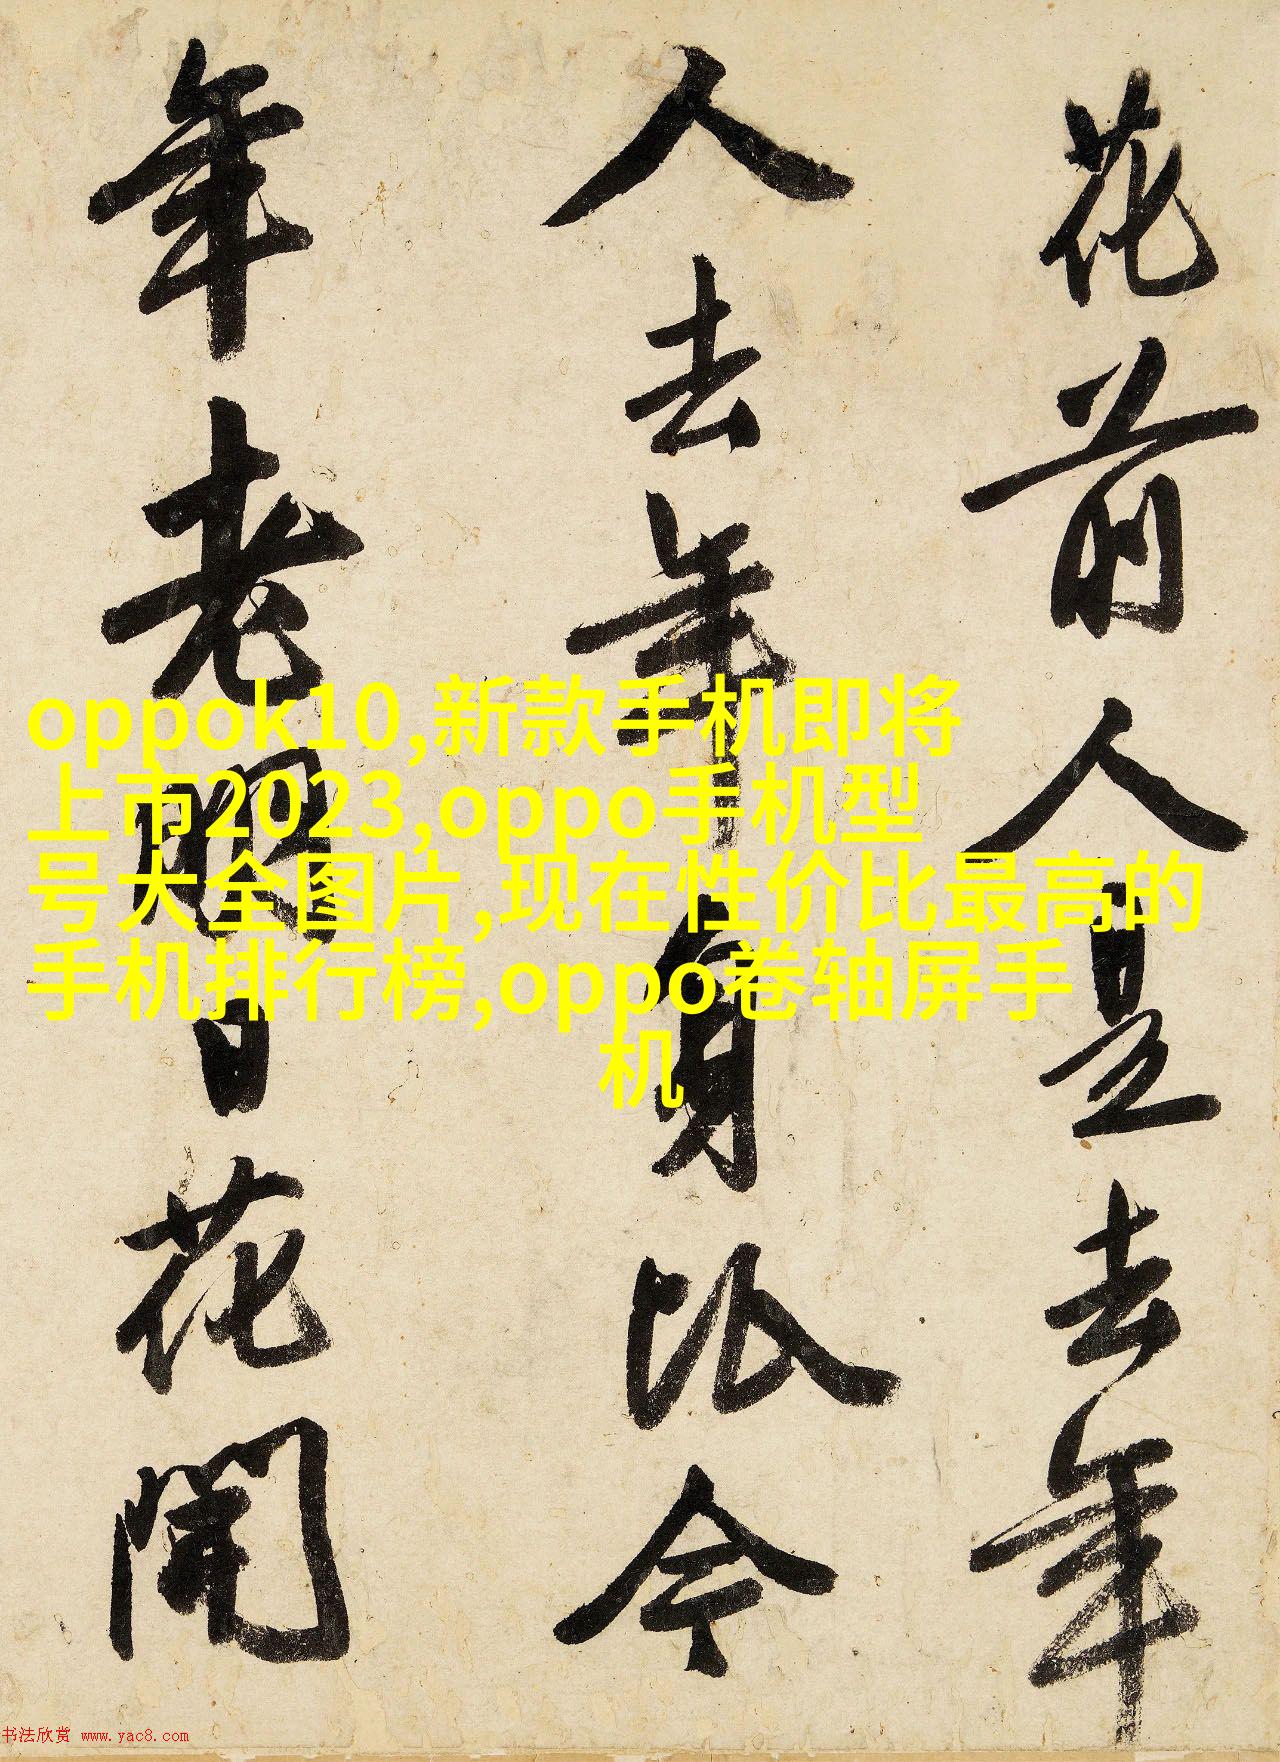 花前人是去年
人去年身比今
年老日花開
oppok10,新款手机即将
上市2023,oppo手机型
号大全图片,现在性价比最高的
手机排行榜,oppo卷轴屏手
机
书法欣赏 www.yac8.com